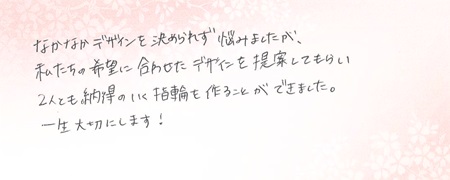 なかなかデザインを決められず悩みましたが、
私たちの希望に合わせたデザインを提案してもらい
2人とも納得のいく指輪を作ることができました。
一生大切にします！